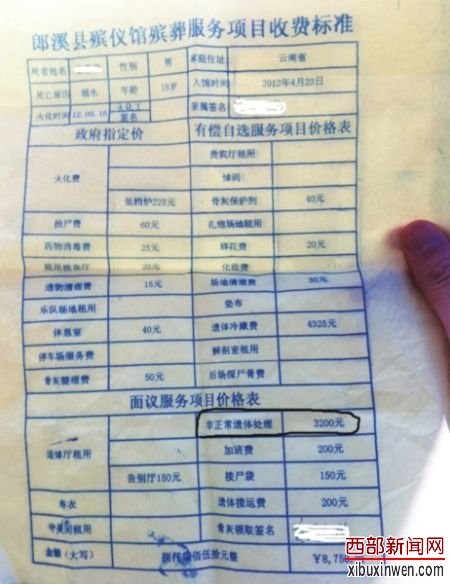 郎溪县殡仪馆殡葬服务项目收费标准
死者姓名 性别 男 家庭住址 云南省
死亡原因 溺水 年龄 19岁 入馆时间 2012年4月23日
火化时间 12.05.16 火化工签名 亲属签名
政府指定价 有偿自选服务项目价格表
火化费 贵宾厅租用
悼词
低档炉225元 骨灰保护剂 40元
抬尸费 60元 礼炮场地租用
药物消毒费 25元 鲜花费 20元
20元 化妆费
遗物清理费 15元 场地清理费
乐队场地租用 垫布
休息室 40元 遗体冷藏费 4325元
停车场服务费 解剖室租用
骨灰整理费 50元 后场探尸骨费
面议服务项目价格表
非正常遗体处理 3200元
追悼厅租用 加班费 200元
告别厅150元 接尸袋 150元
寿衣 遗体接运费 200元
骨灰领取签名
金额（大写） 捌仟 佰伍拾元整 ¥8,75
西部新闻网
xibuxinwen.com